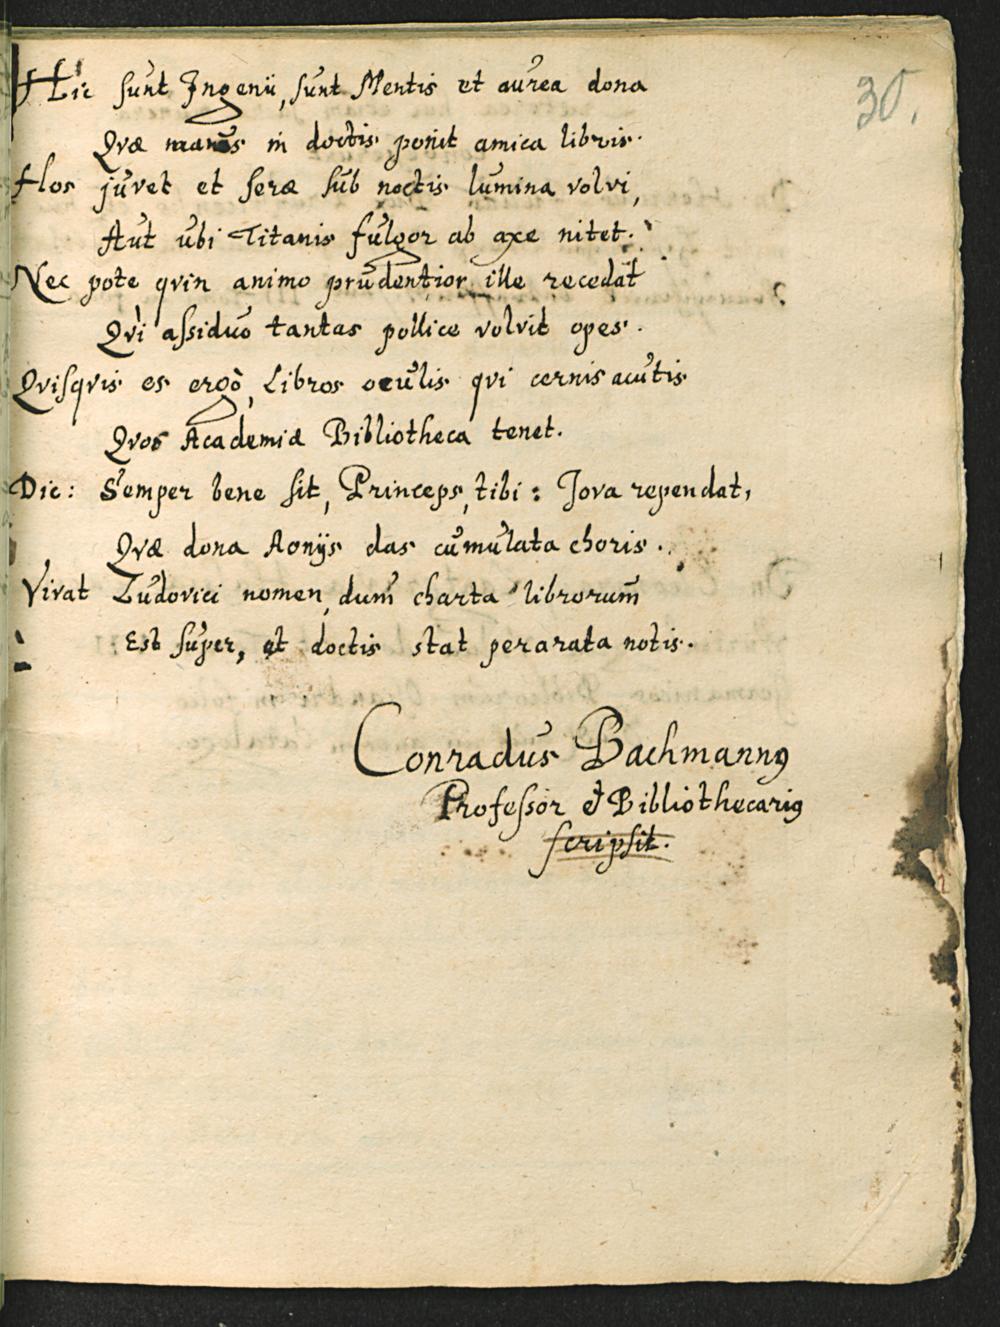 30.
Hic sunt Ingenii, sunt Mentis et aurea dona
Qvæ manus in doctis ponit amica libris.
Hos juvet et seræ sub noctis lumina volvi,
Aut ubi Titanis fulgor ab axe nitet.
Nec pote qvin animo prudentior ille recedat
Qvi assiduo tantas pollice volvit opes.
Qvisqvis es ergò, Libros oculis qvi cernis acutis
Qvos Academiæ Bibliotheca tenet.
Dic: Semper bene sit, Princeps, tibi: Jova rependat,
Qvæ dona Aonijs das cumulata choris.
Vivat Ludovici nomen, dum charta librorum
Est super, et doctis stat perarata notis.
Conradus Bachmannꝰ
Professor et Bibliothecariꝰ
scripsit.